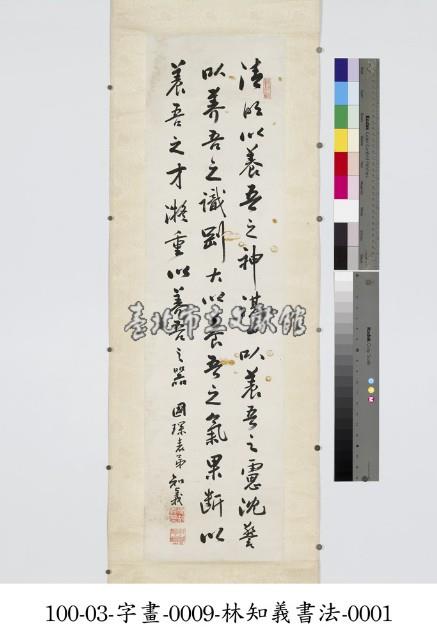 清明以養吾之神湛一以養吾之慮沈警
以養吾之識剛大以養吾之氣果斷以
養吾之才凝重以養吾之器 國琛表弟 知義
臺北市立文獻館
Kodak
Kodak
M
100-03-字畫-0009-林知義書法-0001